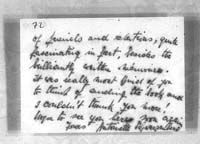 72
of friends and relations, quite
fascinating in fact, besides the
brilliantly written
It was really most kind of you
to think of sending the book and
I couldn't thank you more!
hope to see you here you again
Yours